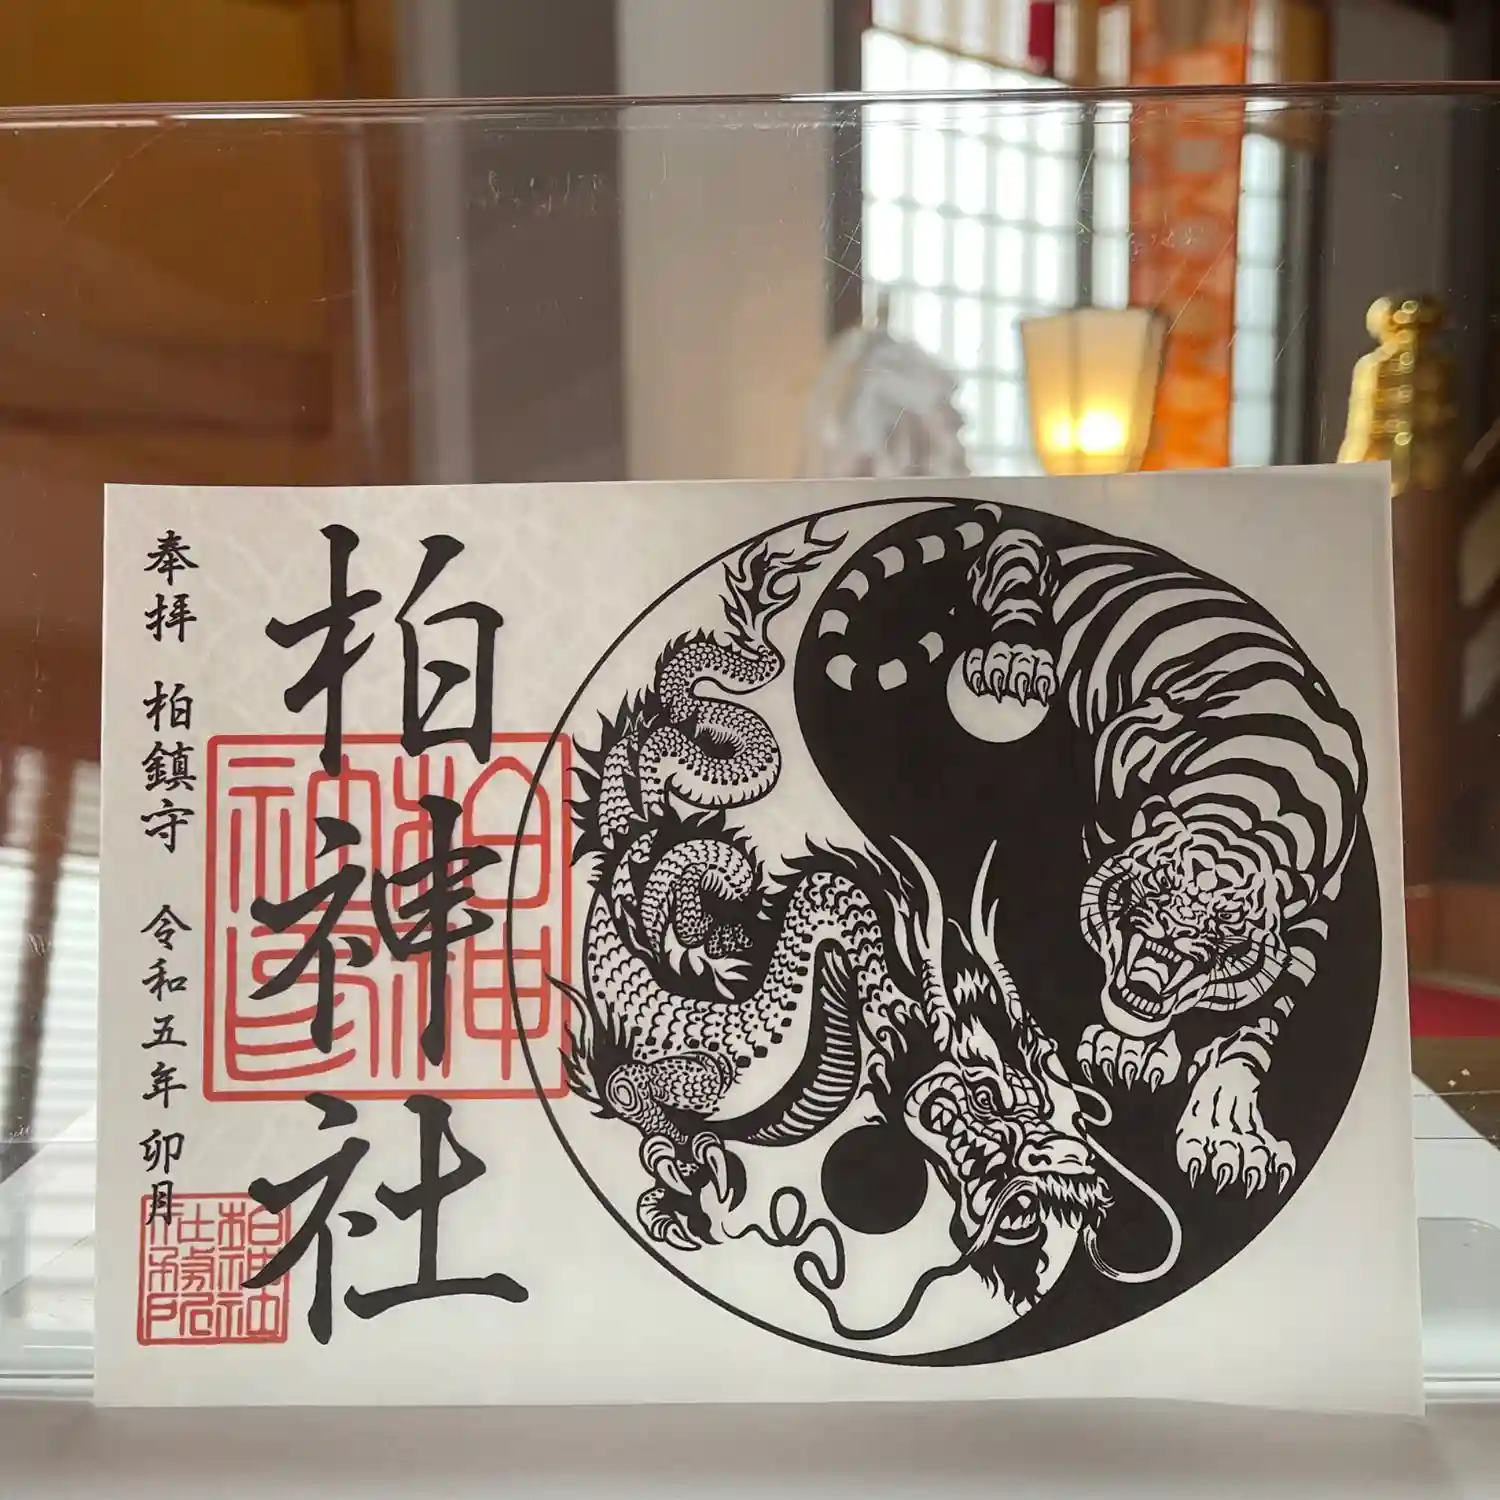 柏神社
奉拝 柏鎮守 令和五年 卯月
柏神
神印
柏神社
社務所